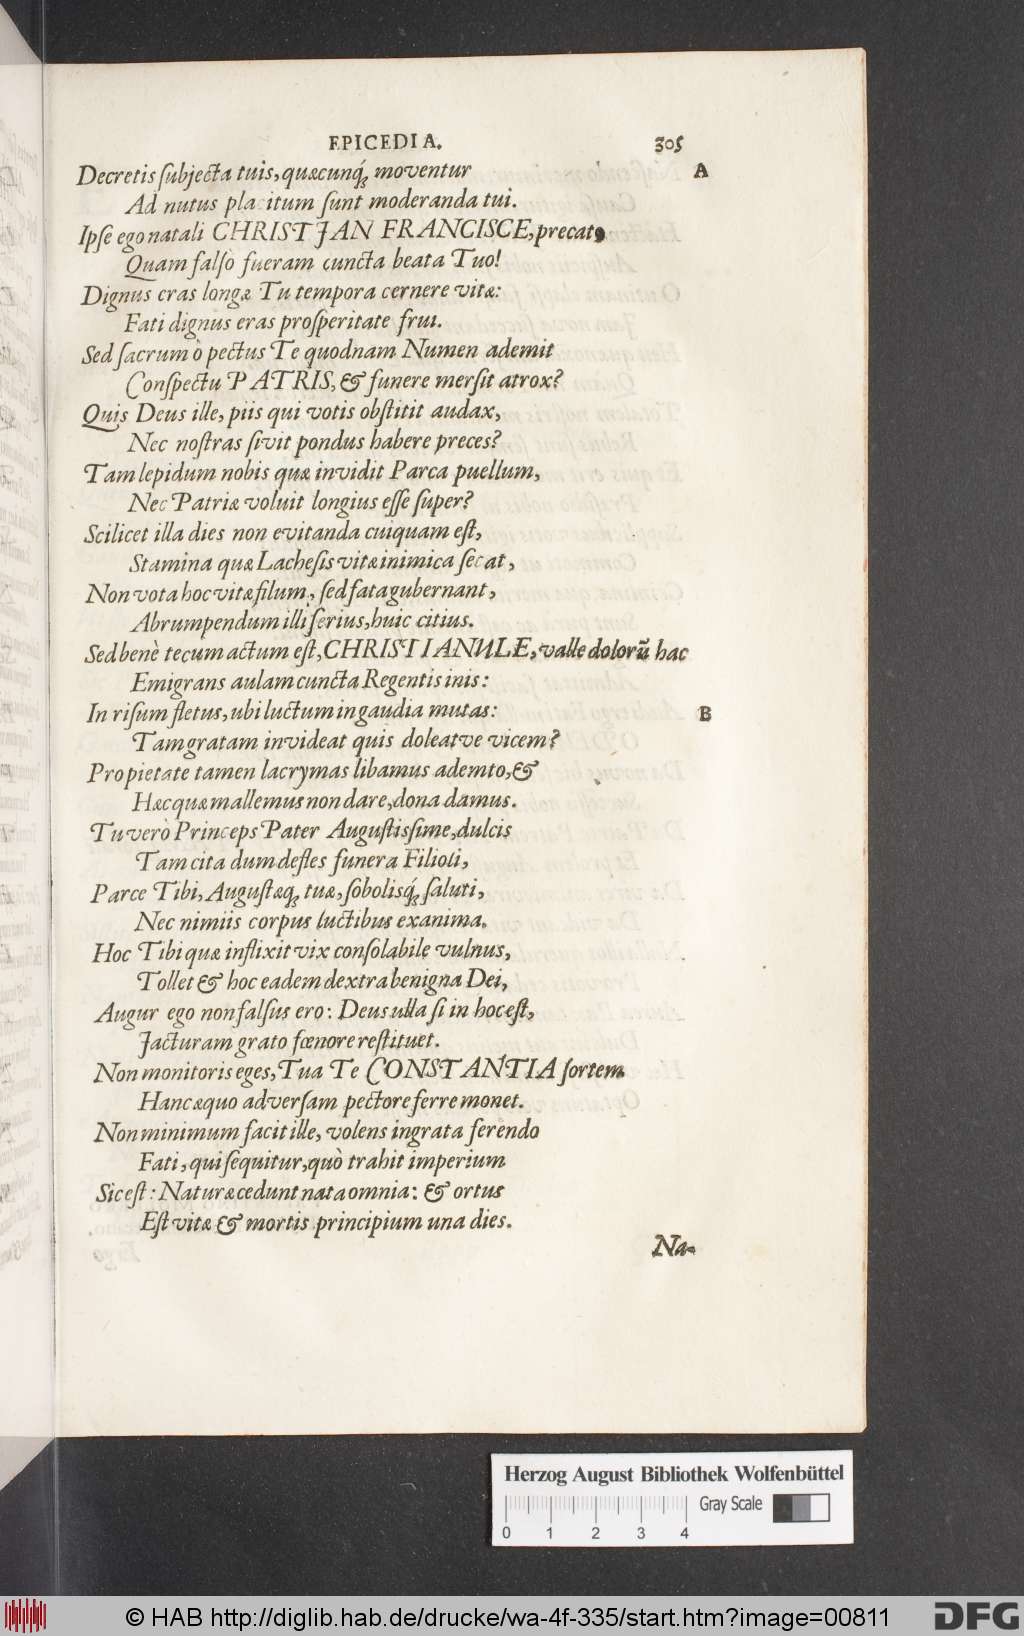 EPICEDIA. 305
Decretis ſubjecta tuis, quæcunq́; moventur A
Ad nutus placitum ſunt moderanda tui.
Ipſe ego natali CHRISTJAN FRANCISCE, precatꝰ
Quam falſò fueram cuncta beata Tuo!
Dignus eras longæ Tu tempora cernere vitæ:
Fati dignus eras proſperitate frui.
Sed ſacrum ò pectus Te quodnam Numen ademit
Conſpectu PATRIS, & funere merſit atrox?
Quis Deus ille, piis qui votis obſtitit audax,
Nec noſtras ſivit pondus habere preces?
Tam lepidum nobis quæ invidit Parca puellum,
Nec Patriæ voluit longius eſſe ſuper?
Scilicet illa dies non evitanda cuiquam eſt,
Stamina quæ Lacheſis vitæ inimica ſecat,
Non vota hoc vitæ filum, ſed fata gubernant,
Abrumpendum illi ſerius, huic citius.
Sed benè tecum actum eſt, CHRISTIANULE, valle dolorũ hac
Emigrans aulam cuncta Regentis inis:
In riſum fletus, ubi luctum in gaudia mutas: B
Tam gratam invideat quis doleatve vicem?
Pro pietate tamen lacrymas libamus ademto, &
Hæc quæ mallemus non dare, dona damus.
Tu verò Princeps Pater Auguſtisſime, dulcis
Tam cita dum defles funera Filioli,
Parce Tibi, Auguſtæq; tuæ, ſobolisq́; ſaluti,
Nec nimiis corpus luctibus exanima.
Hoc Tibi quæ inflixit vix conſolabile vulnus,
Tollet & hoc eadem dextra benigna Dei,
Augur ego non falſus ero: Deus ulla ſi in hoc eſt,
Jacturam grato fœnore reſtituet.
Non monitoris eges, Tua Te CONSTANTIA ſortem
Hanc æquo adverſam pectore ferre monet.
Non minimum facit ille, volens ingrata ferendo
Fati, qui ſequitur, quò trahit imperium
Sic eſt: Naturæ cedunt nata omnia: & ortus
Eſt vitæ & mortis principium una dies.
Na-
Herzog August Bibliothek Wolfenbüttel
Gray Scale
0 1 2 3 4
© HAB http://diglib.hab.de/drucke/wa-4f-335/start.htm?image=00811 DFG